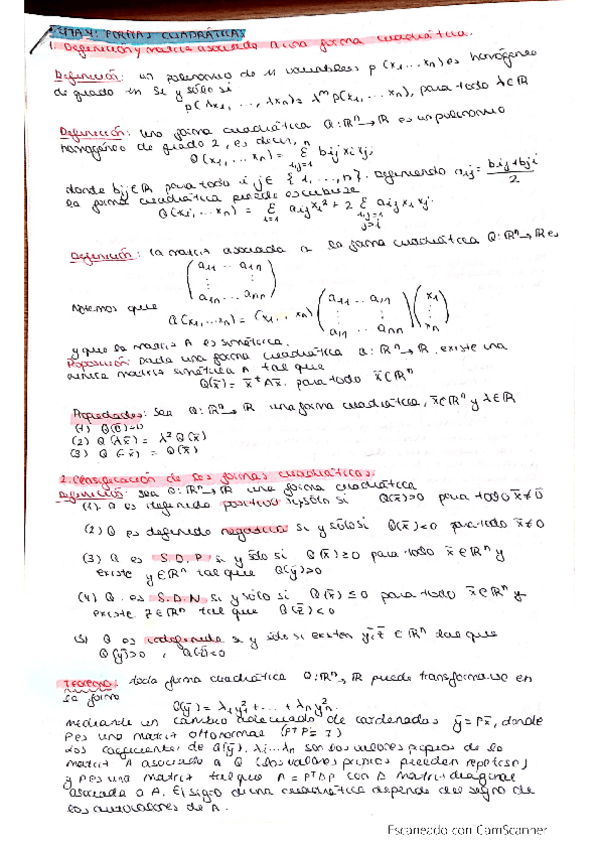 TEMA 4: FORMAS CUADRÁTICAS
1. Definición y matriz asociada a una forma cuadrática.
Definición: un polinomio de n variables p(x1...xn) es homogéneo
de grado m si y sólo si
p(λx1, ..., λxn) = λ^m p(x1, ... xn), para todo λ∈ℝ
Definición: una forma cuadrática Q: ℝⁿ→ℝ es un polinomio
homogéneo de grado 2, es decir,
Q(x1, ... xn) = Σ i,j=1 n bij xi xj,
donde bij∈ℝ para todo i j ∈ {1, ..., n}. definiendo aij = bij+bji / 2
la forma cuadrática puede escribirse
Q(x1, ... xn) = Σ i=1 aij xi² + 2 Σ i,j=1 j>i aij xi xj.
Definición: la matriz asociada a la forma cuadrática Q: ℝⁿ→ℝ es
( a11 ... a1n
⋮ ⋮
a1n ... ann )
Notemos que
Q(x1,...xn) = (x1 .. xn) ( a11 ... a1n ⋮ ⋮ a1n ... ann ) ( x1 ⋮ xn )
y que la matriz A es simétrica.
Proposición: Dada una forma cuadrática Q: ℝⁿ→ℝ existe una
única matriz simétrica A tal que
Q(x̄) = x̄ᵗAx̄. para todo x̄∈ℝⁿ
Propiedades: sea Q: ℝⁿ→ℝ una forma cuadrática, x̄∈ℝⁿ y λ∈ℝ
(1) Q(0̄)=0
(2) Q(λx̄) = λ²Q(x̄)
(3) Q(-x̄) = Q(x̄)
2. Clasificación de las formas cuadráticas.
Definición: sea Q: ℝⁿ→ℝ una forma cuadrática
(1). Q es definida positiva si y sólo si Q(x̄)>0 para todo x̄≠0̄
(2) Q es definida negativa si y sólo si Q(x̄)<0 para todo x̄≠0
(3) Q es S.D.P si y sólo si Q(x̄)≥0 para todo x̄∈ℝⁿ y
existe y∈ℝⁿ tal que Q(ȳ)>0
(4) Q. es S.D.N si y sólo si Q(x̄)≤0 para todo x̄∈ℝⁿ y
existe z∈ℝⁿ tal que Q(z̄)<0
(5) Q es indefinida si y sólo si existen ȳ,z̄ ∈ℝⁿ tales que
Q(ȳ)>0, Q(z̄)<0
Teorema: toda forma cuadrática Q: ℝⁿ→ℝ puede transformarse en
la forma
Q(ȳ) = λ1y1² + ... + λnyn².
mediante un cambio adecuado de coordenadas ȳ=Px̄, donde
P es una matriz ortonormal (PᵗP=I)
Los coeficientes de Q(ȳ), λi...λn son los valores propios de la
matriz A asociada a Q (los valores propios pueden repetirse)
y P es una matriz tal que A = PᵗDP con D matriz diagonal
asociada a A. El signo de una cuadrática depende del signo de
los autovalores de A.
Escaneado con CamScanner